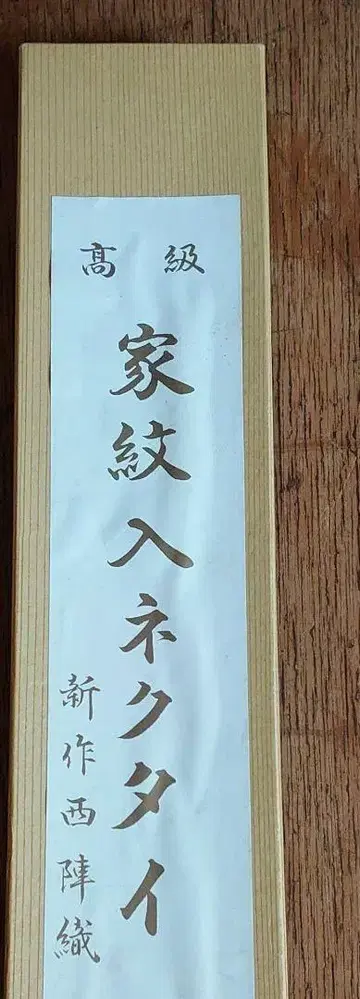 高級
家紋入ネクタイ
新作西陣織